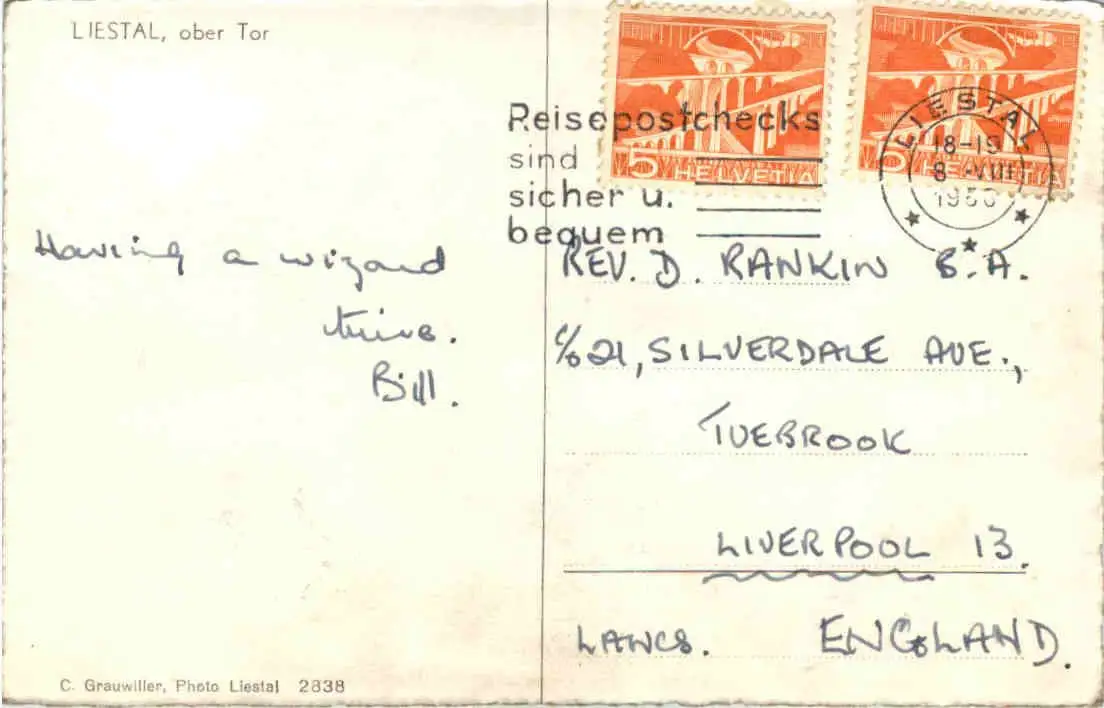 LIESTAL, ober Tor
Reisepostchecks
sind
sicher u.
bequem
5 HELVETIA
5 HELVETIA
LIESTAL
18-19
8-VIII
1950
Having a wizard
time.
Bill.
REV. D. RANKIN B.A.
c/o 21, SILVERDALE AVE.,
TUEBROOK
LIVERPOOL 13.
LANCS. ENGLAND.
C. Grauwiller, Photo Liestal 2838